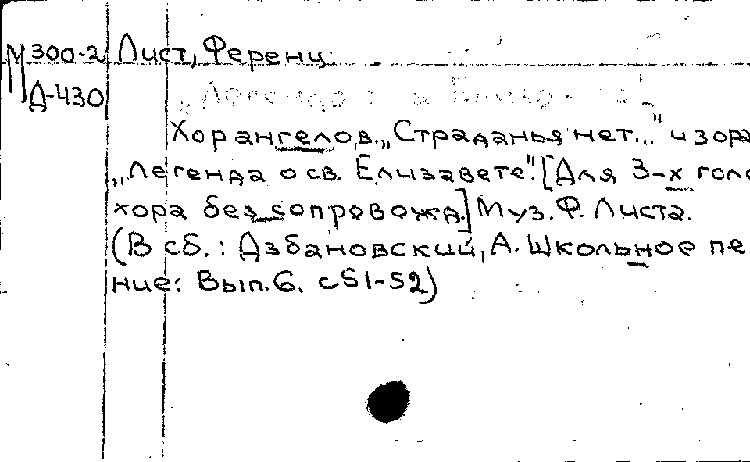 М300-2 Лист, Ференц.
Д-430
„Легенда
Хор ангелов „Страданья нет..." из ора
„Легенда о св. Елизавете". [Для 3-х голо
хора без сопровожд.] Муз. Ф. Листа.
(В сб.: Дзбановский, А. Школьное пе
ние: Вып. 6. с 51-52)